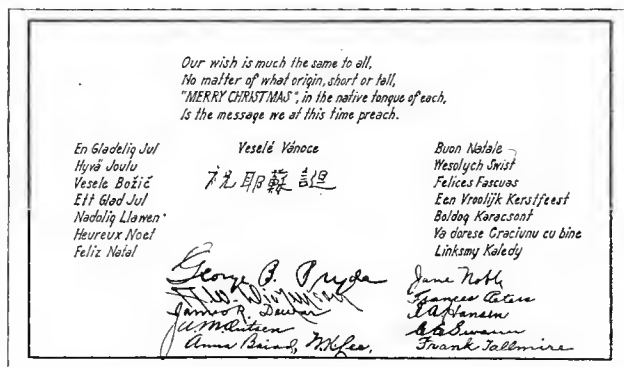 Our wish is much the same to all,
No matter of what origin, short or tall,
"MERRY CHRISTMAS", in the native tongue of each,
Is the message we at this time preach.
En Gladelig Jul
Hyvä Joulu
Vesele Božič
Ett Glad Jul
Nadoliq Llawen
Heureux Noet
Feliz Natal
Veselé Vánoce
祝耶蘇誕
Buon Natale
Wesolych Swist
Felices Fascuas
Een Vroolijk Kerstfeest
Boldog Karacsont
Va dorese Craciunu cu bine
Linksmy Kaledy
George B. Pryde
James R. Dewar
Anna Baird, W.K. Lee.
Jane Noble
Frances Peters
Hansen
Swanner
Frank Tallmire